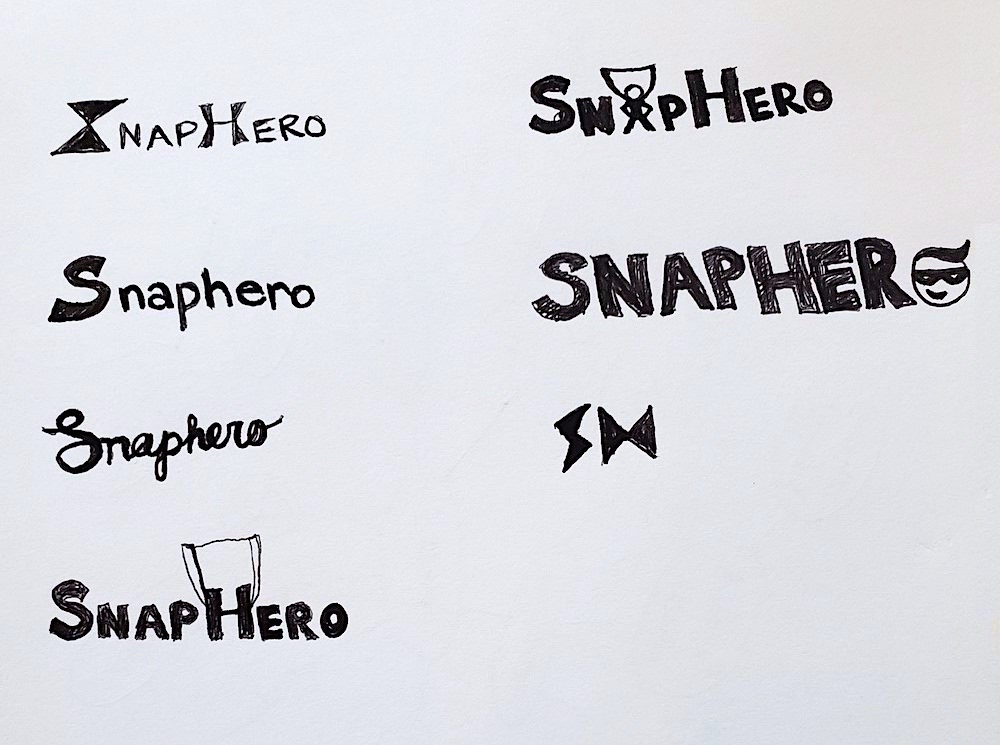 SnapHero
Snaphero
Snaphero
SnapHero
SnapHero
SNAPHERO
SH